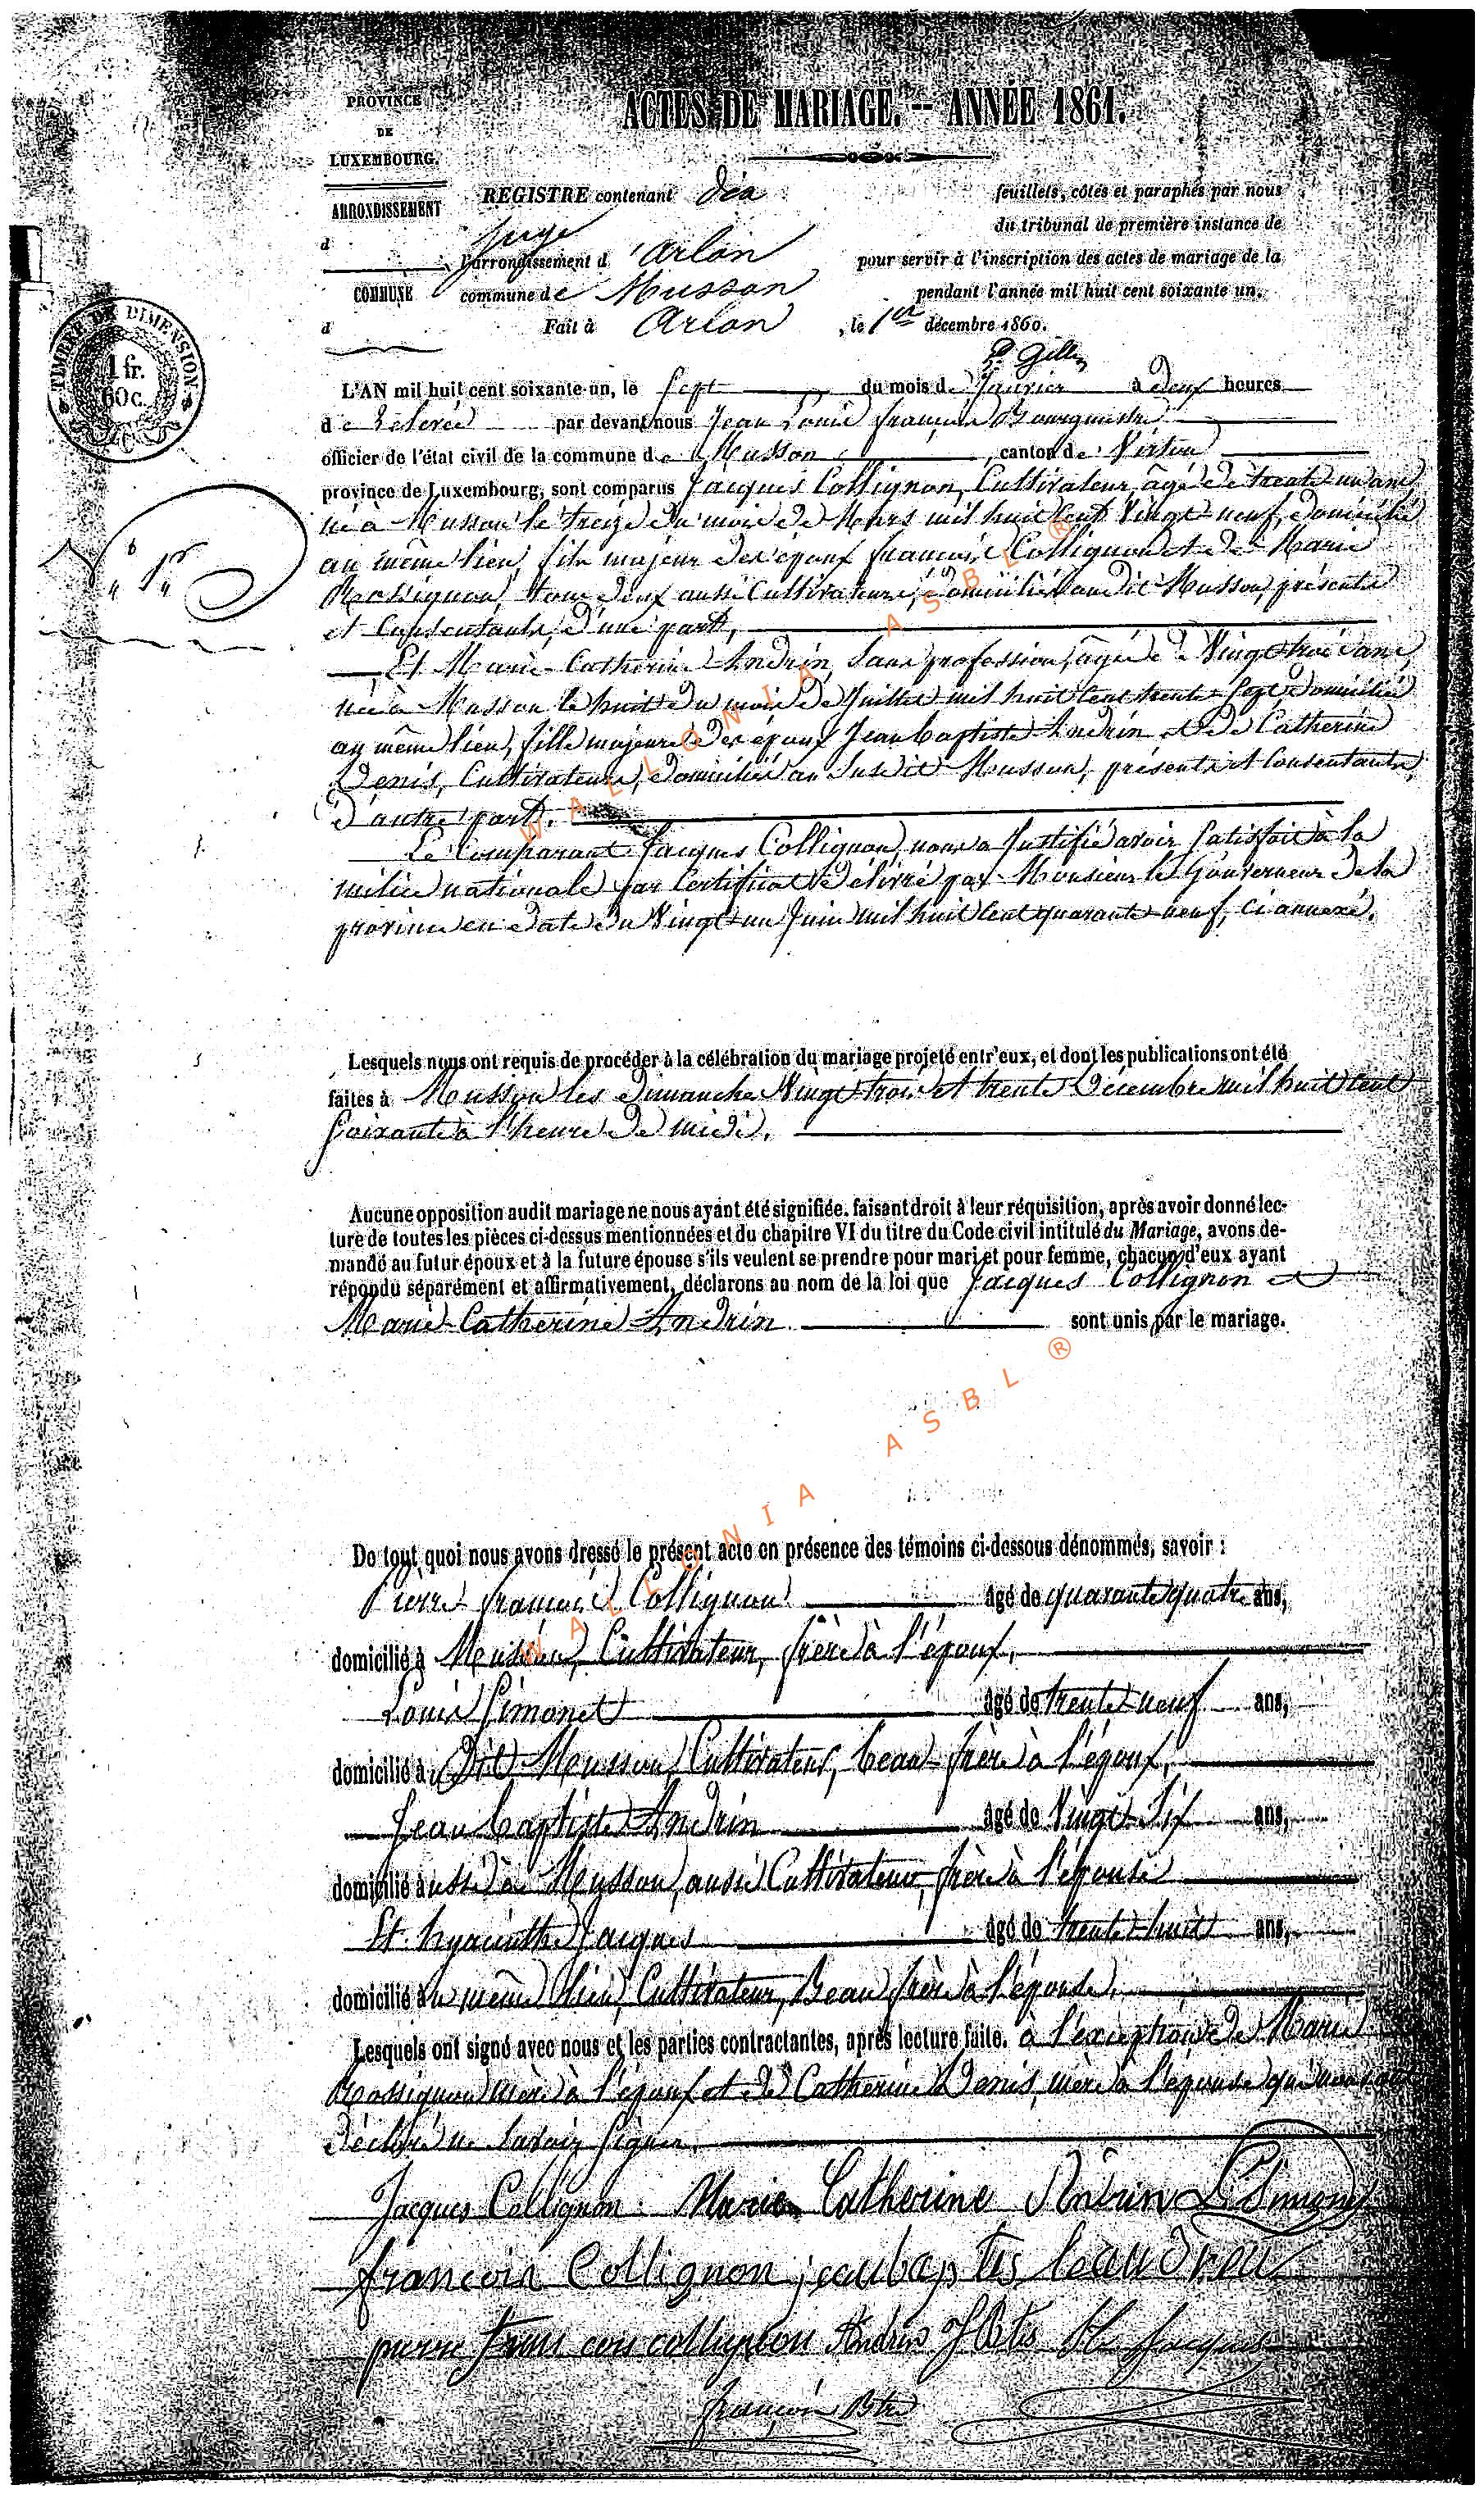 PROVINCE
DE
LUXEMBOURG.
ACTES DE MARIAGE. -- ANNÉE 1861.
ARRONDISSEMENT
d
COMMUNE
d
REGISTRE contenant dix feuillets, cotés et paraphés par nous
juge du tribunal de première instance de
l'arrondissement d'Arlon pour servir à l'inscription des actes de mariage de la
commune de Musson pendant l'année mil huit cent soixante un.
Fait à Arlon, le 1er décembre 1860.
TIMBRE DE DIMENSION
1 fr.
60 c.
L'AN mil huit cent soixante-un, le sept du mois de Janvier à deux heures
de relevée par devant nous Jean Louis François
officier de l'état civil de la commune de Musson, canton de Virton
province de Luxembourg, sont comparus Jacques Collignon, Cultivateur, âgé de trente un ans
né à Musson le treize du mois de Mars mil huit cent vingt neuf, domicilié
au même lieu, fils majeur des époux François Collignon et de Marie
Rossignon, tous deux aussi Cultivateurs, domiciliés au dit Musson, présents
et consentants, d'une part,
Et Marie-Catherine Andrin, sans profession, âgée de vingt trois ans,
née à Musson le huit du mois de Juillet mil huit cent trente-sept, domiciliée
au même lieu, fille majeure des époux Jean baptiste Andrin, et de Catherine
Denis, Cultivateurs, domiciliés au susdit Musson, présents et consentants,
d'autre part.
Le Comparant Jacques Collignon, nous a justifié avoir satisfait à la
milice nationale par Certificat délivré par Monsieur le Gouverneur de la
province en date du vingt un Juin mil huit cent quarante neuf, ci annexé.
"1er"
Lesquels nous ont requis de procéder à la célébration du mariage projeté entr'eux, et dont les publications ont été
faites à Musson les dimanche vingt trois et trente Décembre mil huit cent
soixante à l'heure de midi.
Aucune opposition audit mariage ne nous ayant été signifiée, faisant droit à leur réquisition, après avoir donné lec-
ture de toutes les pièces ci-dessus mentionnées et du chapitre VI du titre du Code civil intitulé du Mariage, avons de-
mandé au futur époux et à la future épouse s'ils veulent se prendre pour mari et pour femme, chacun d'eux ayant
répondu séparément et affirmativement, déclarons au nom de la loi que Jacques Collignon et
Marie-Catherine Andrin sont unis par le mariage.
De tout quoi nous avons dressé le présent acte en présence des témoins ci-dessous dénommés, savoir :
Pierre François Collignon âgé de quarante quatre ans,
domicilié à Musson, Cultivateur, frère à l'époux,
Louis Simonet âgé de trente-neuf ans,
domicilié au Dit Musson, Cultivateur, beau-frère à l'époux,
Jean baptiste Andrin âgé de vingt-six ans,
domicilié aussi à Musson, aussi Cultivateur, frère à l'épouse
Et hyacinthe Jacques âgé de trente-huit ans,
domicilié au même lieu, Cultivateur, Beau frère à l'épouse.
Lesquels ont signé avec nous et les parties contractantes, après lecture faite. à l'exception de Marie
Rossignon mère à l'époux et de Catherine Denis, mère à l'épouse qui nous ont
déclaré ne savoir signer.
Jacques Collignon Marie Catherine Andrin L Simonet
francois Collignon jeanbaptis
pierre francois collignon Andrin JBtis H Jacques
WALLONIA ASBL ®
WALLONIA ASBL ®